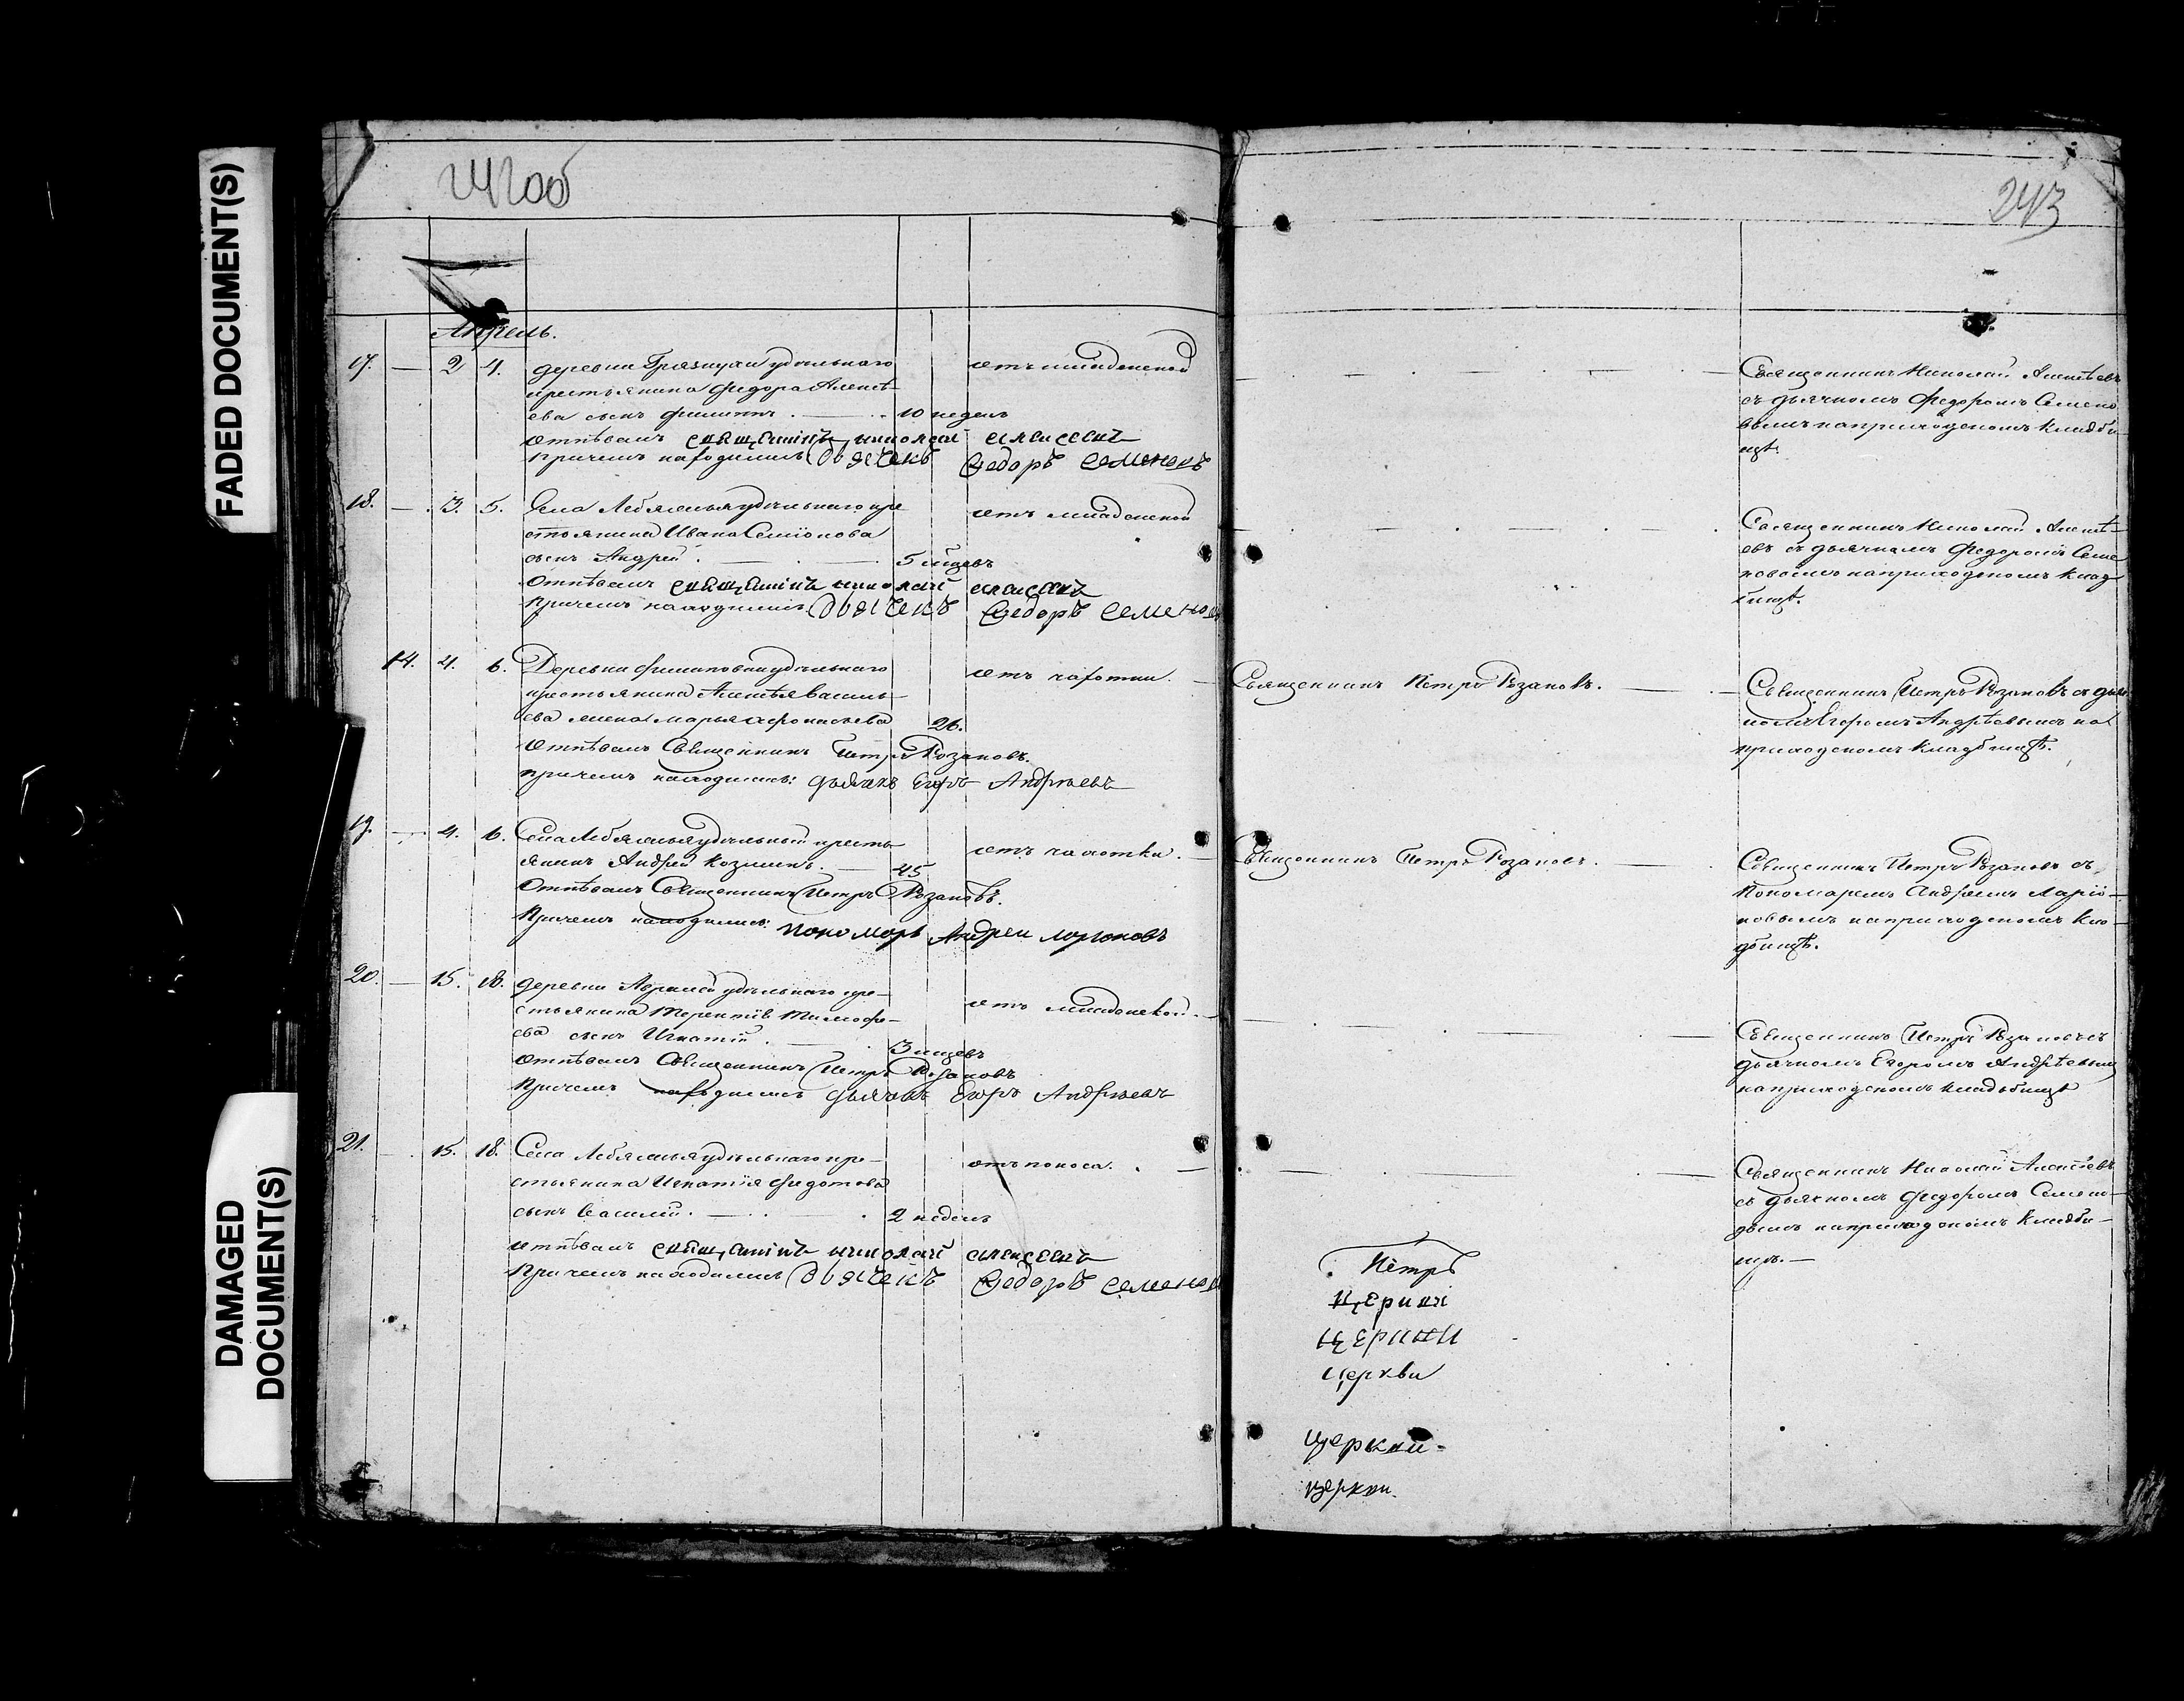 FADED DOCUMENT(S)
DAMAGED
DOCUMENT(S)
243
Апрель.
17. — 2 4. деревни Грязнухи удѣльнаго отъ младенской
крестьянина Федора Алексѣ-
ева сынъ Филиппъ. — 10 недель
Отпѣвалъ священникъ николай алексеевъ
Причемъ находились Дьячекъ Федоръ Семеновъ
Священникъ Николай Алексѣевъ
съ дьячкомъ Федоромъ Семено-
вымъ на приходскомъ кладби-
щѣ.
18. — 3. 5. Села Лебяжья удѣльнаго кре отъ младенской
стьянина Ивана Семіонова
сынъ Андрей. — 5 мцевъ
Отпѣвалъ священникъ николай алексеевъ
Причемъ находились Дьячекъ Федоръ Семенов
Священникъ Николай Алексѣ-
евъ съ дьячкомъ Федоромъ Семе
новымъ на приходскомъ клад
бищѣ.
14. 4. 6. Деревни Филиповки удѣльнаго отъ чахотки. —
крестьянина Алексѣя Василь-
ева жена Марья Афонасьева 26.
Отпѣвалъ Священникъ Петръ Розановъ.
Причемъ находились: дьячекъ Егоръ Андреевъ
Священникъ Петръ Розановъ. —
Священникъ Петръ Розановъ съ дьяч
комъ Егоромъ Андрѣевымъ на
приходскомъ кладбищѣ.
19. — 4. 6. Села Лебяжья удѣльный кресть- отъ чахотки. —
янинъ Андрей Козминъ. — 45
Отпѣвалъ Священникъ Петръ Розановъ.
Причемъ находились: пономарь Андрей Ларіоновъ
Священникъ Петръ Розановъ. —
Священникъ Петръ Розановъ съ
Пономаремъ Андреемъ Ларіо-
новымъ на приходскомъ кла-
дбищѣ.
20. — 15. 18. деревни удѣльнаго кре- отъ младенской. —
стьянина Терентія Тимофе-
ева сынъ Игнатій. — 3 мцевъ
Отпѣвалъ Священникъ Петръ Розановъ
Причемъ находились дьячекъ Егоръ Андреевъ
Священникъ Петръ Розановъ съ
дьячкомъ Егоромъ Андрѣевымъ
на приходскомъ кладбищѣ
21. — 15. 18. Села Лебяжья удѣльнаго кре- отъ поноса. —
стьянина Игнатія Федотова
сынъ Василій. — 2 недель
Отпѣвалъ священникъ николай алексеевъ
Причемъ находились Дьячекъ Федоръ Семенов
Священникъ Николай Алексѣевъ
съ дьячкомъ Федоромъ Семено-
вымъ на приходскомъ кладби-
щѣ. —
Петръ
церкви
церкви
церкви
церкви
церкви.